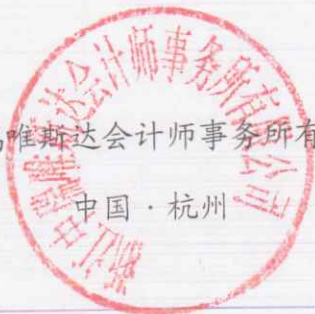 唯斯达会计师事务所有
中国·杭州
浙江中瑞唯斯达会计师事务所有限公司